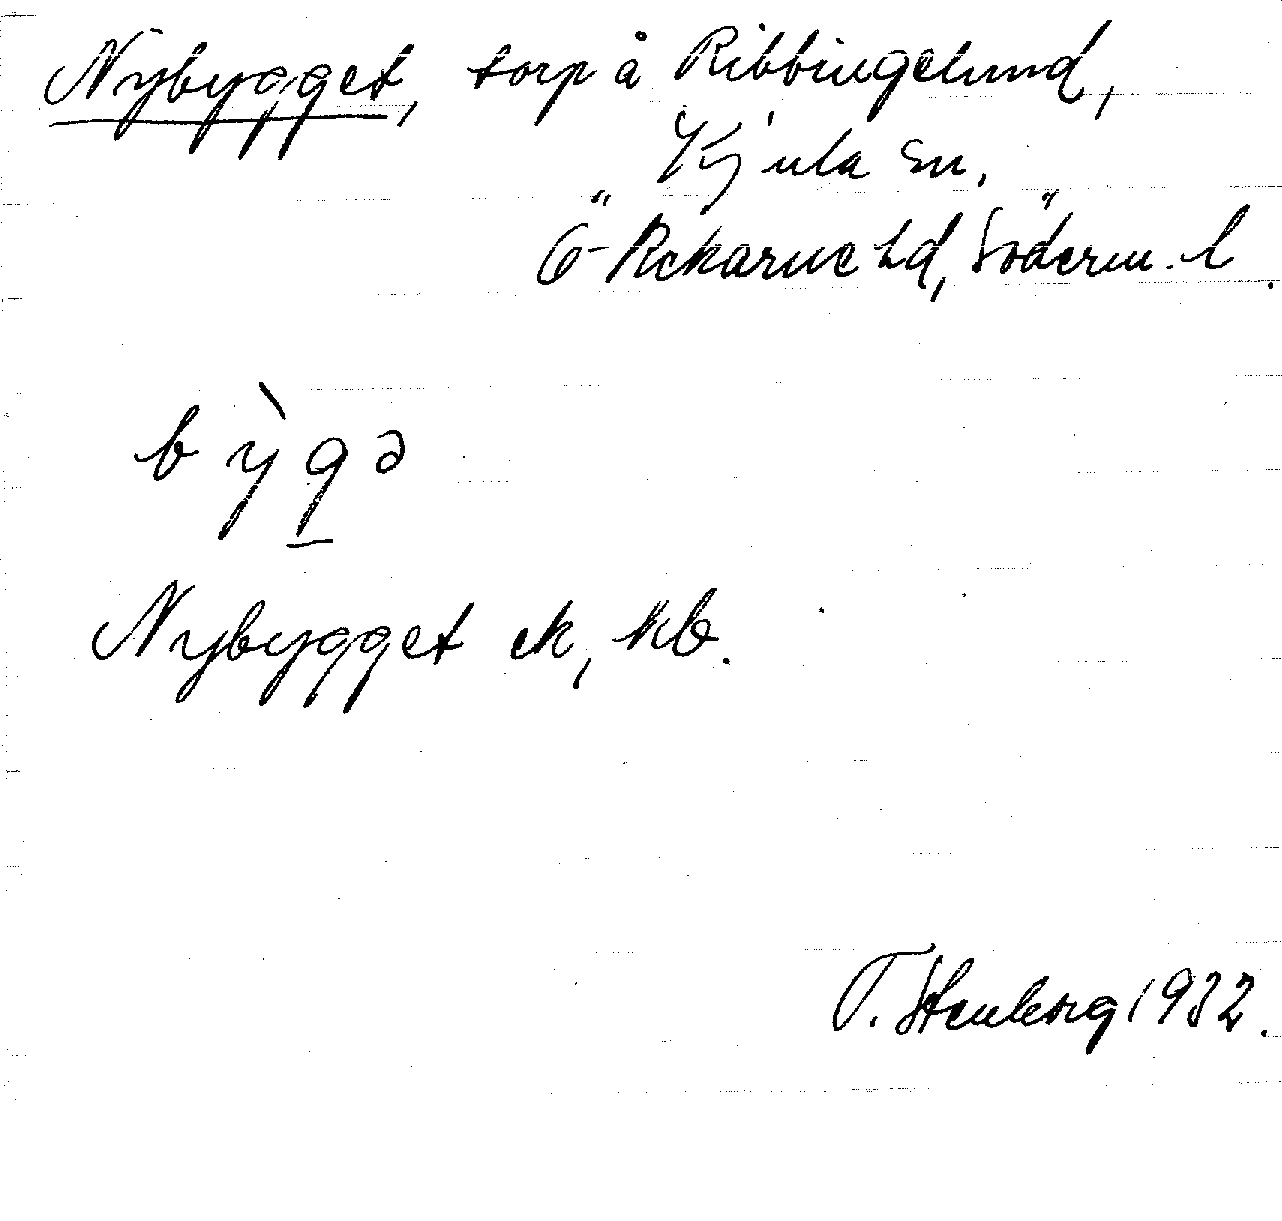 Nybygget, torp å Ribbingelund,
Kjula sn,
Ö-Rekarne hd, Söderm. l.
bỳgə
Nybygget ek, kb.
T. Stenborg 1932.